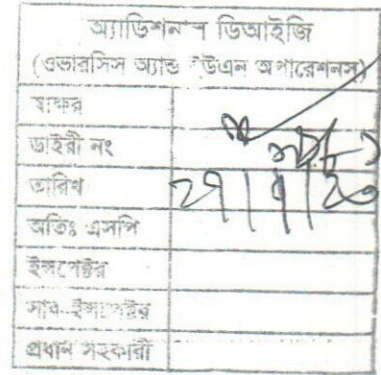 অ্যাডিশনাল ডিআইজি
(ওভারসিস অ্যান্ড ইউএন অপারেশনস)
স্বাক্ষর
ডাইরী নং
তারিখ
অতিঃ এসপি
ইন্সপেক্টর
সাব-ইন্সপেক্টর
প্রধান সহকারী